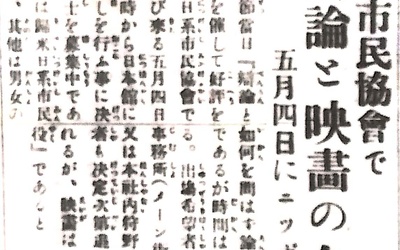 市民協會で
論と映畫の
五月四日にニッ
節當日『辯論と如何を問はす論
を催して好評をであるが時間は
び來る五月四日事務所(メーン
日系市民協會でる。出場希望者
時から日本館に又は本社内狩野
しを行ふ事に決者も決定次第
士を募集中であれるが、映畫は
は歸米日系市民役』であと
其他は男女の